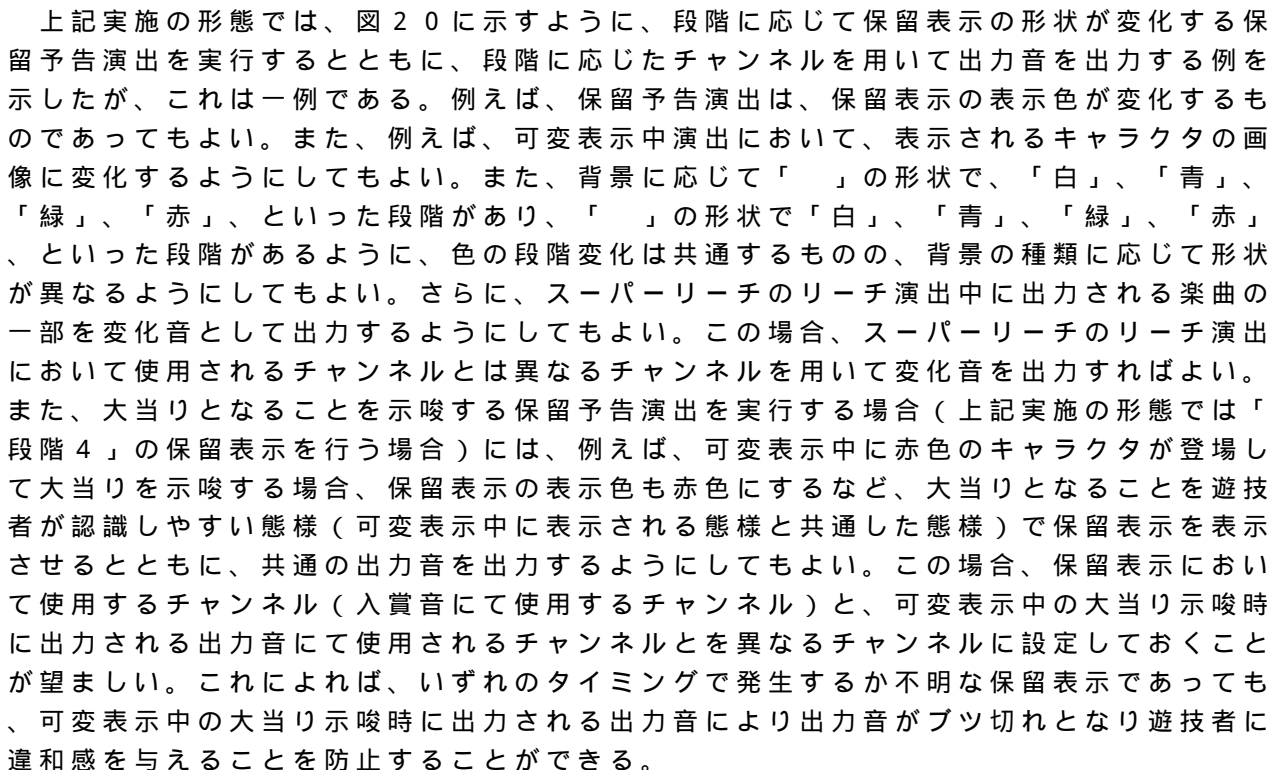 上記実施の形態では、図２０に示すように、段階に応じて保留表示の形状が変化する保
留予告演出を実行するとともに、段階に応じたチャンネルを用いて出力音を出力する例を
示したが、これは一例である。例えば、保留予告演出は、保留表示の表示色が変化するも
のであってもよい。また、例えば、可変表示中演出において、表示されるキャラクタの画
像に変化するようにしてもよい。また、背景に応じて「　」の形状で、「白」、「青」、
「緑」、「赤」、といった段階があり、「　」の形状で「白」、「青」、「緑」、「赤」
、といった段階があるように、色の段階変化は共通するものの、背景の種類に応じて形状
が異なるようにしてもよい。さらに、スーパーリーチのリーチ演出中に出力される楽曲の
一部を変化音として出力するようにしてもよい。この場合、スーパーリーチのリーチ演出
において使用されるチャンネルとは異なるチャンネルを用いて変化音を出力すればよい。
また、大当りとなることを示唆する保留予告演出を実行する場合（上記実施の形態では「
段階４」の保留表示を行う場合）には、例えば、可変表示中に赤色のキャラクタが登場し
て大当りを示唆する場合、保留表示の表示色も赤色にするなど、大当りとなることを遊技
者が認識しやすい態様（可変表示中に表示される態様と共通した態様）で保留表示を表示
させるとともに、共通の出力音を出力するようにしてもよい。この場合、保留表示におい
て使用するチャンネル（入賞音にて使用するチャンネル）と、可変表示中の大当り示唆時
に出力される出力音にて使用されるチャンネルとを異なるチャンネルに設定しておくこと
が望ましい。これによれば、いずれのタイミングで発生するか不明な保留表示であっても
、可変表示中の大当り示唆時に出力される出力音により出力音がブツ切れとなり遊技者に
違和感を与えることを防止することができる。